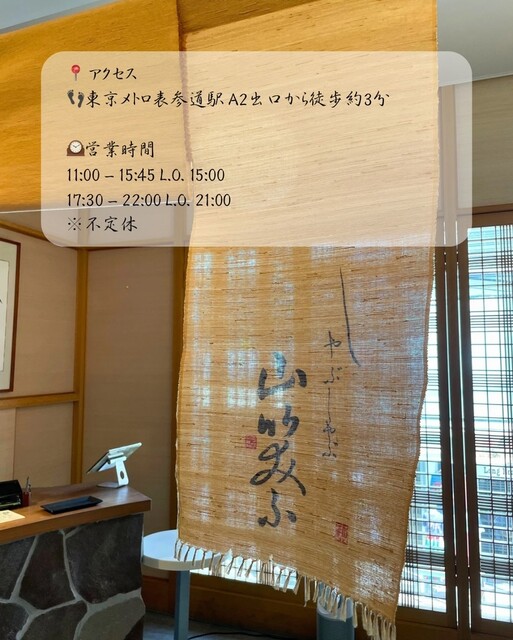 📍 アクセス
👣東京メトロ表参道駅 A2出口から徒歩約3分
🕰️営業時間
11:00 – 15:45 L.O. 15:00
17:30 – 22:00 L.O. 21:00
※不定休